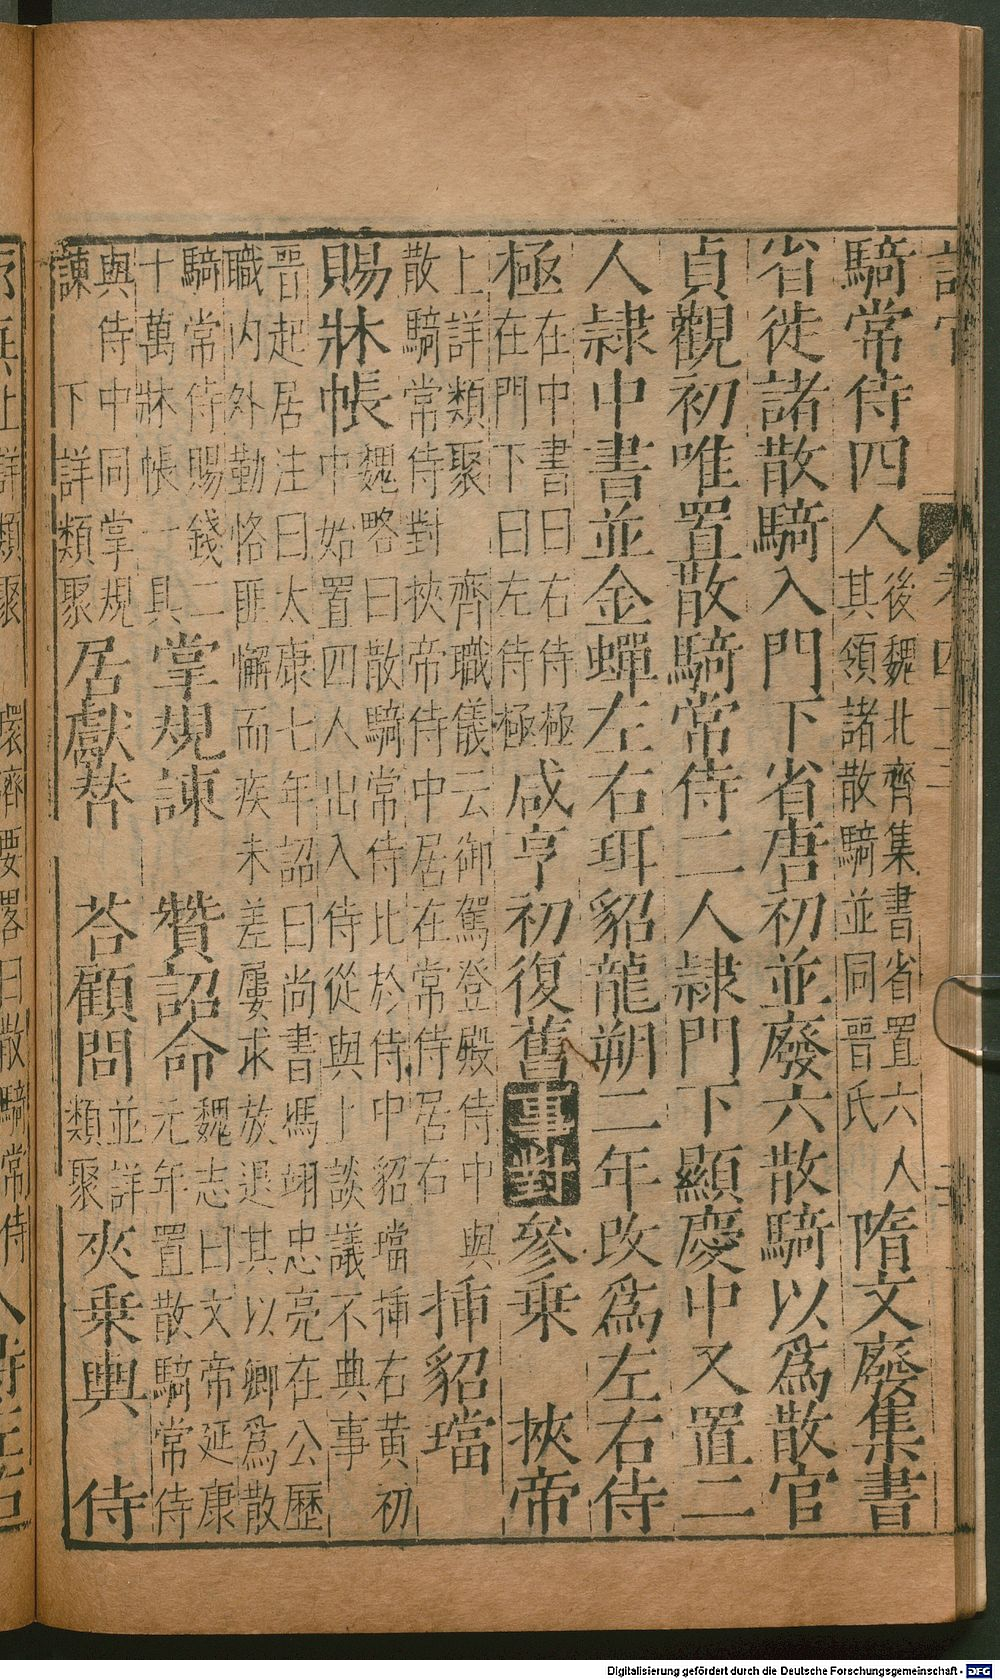 騎常侍四人後魏北齊集書省置六人其領諸散騎並同晉氏隋文廢集書
省徙諸散騎入門下省唐初並廢六散騎以爲散官
貞觀初唯置散騎常侍二人隸門下顯慶中又置二
人隸中書並金蟬左右珥貂龍朔二年改爲左右侍
極在中書曰右侍極在門下曰左侍極咸亨初復舊事對參乘 挾帝
上詳類聚 齊職儀云御駕登殿侍中與散騎常侍對挾帝侍中居左常侍居右 挿貂璫
賜牀帳魏略曰散騎常侍比於侍中貂璫挿右黃初中始置四人出入侍從與上談議不典事
晉起居注曰太康七年詔曰尚書馮翊忠亮在公歷職內外勤恪匪懈而疾未差屢求放退其以卿爲散
騎常侍賜錢二十萬牀帳一具 掌規諫 贊詔命魏志曰文帝延康元年置散騎常侍
與侍中同掌規諫下詳類聚 居獻替 荅顧問並詳類聚 夾乗輿 侍
環濟要畧曰散騎常侍
Digitalisierung gefördert durch die Deutsche Forschungsgemeinschaft - DFG